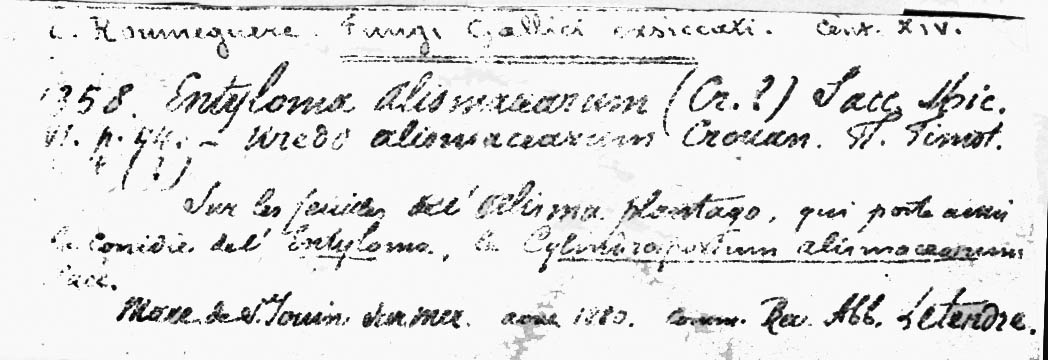 C. Roumeguere. Fungi Gallici exsiccati. Cent. XIV.
1358. Entyloma alismacearum (Cr. ?) Sacc. Mic.
VI. p. 44. – Uredo alismacearum Crouan. Fl. Finist.
(?)
Sur les feuilles de l'Alisma plantago, qui porte aussi
la conidie de l'Entyloma, le Cylindrosporium alismacearum
Sacc.
Mare de St Jouin sur mer. aout 1880. comm. Rev. Abb. Letendre.